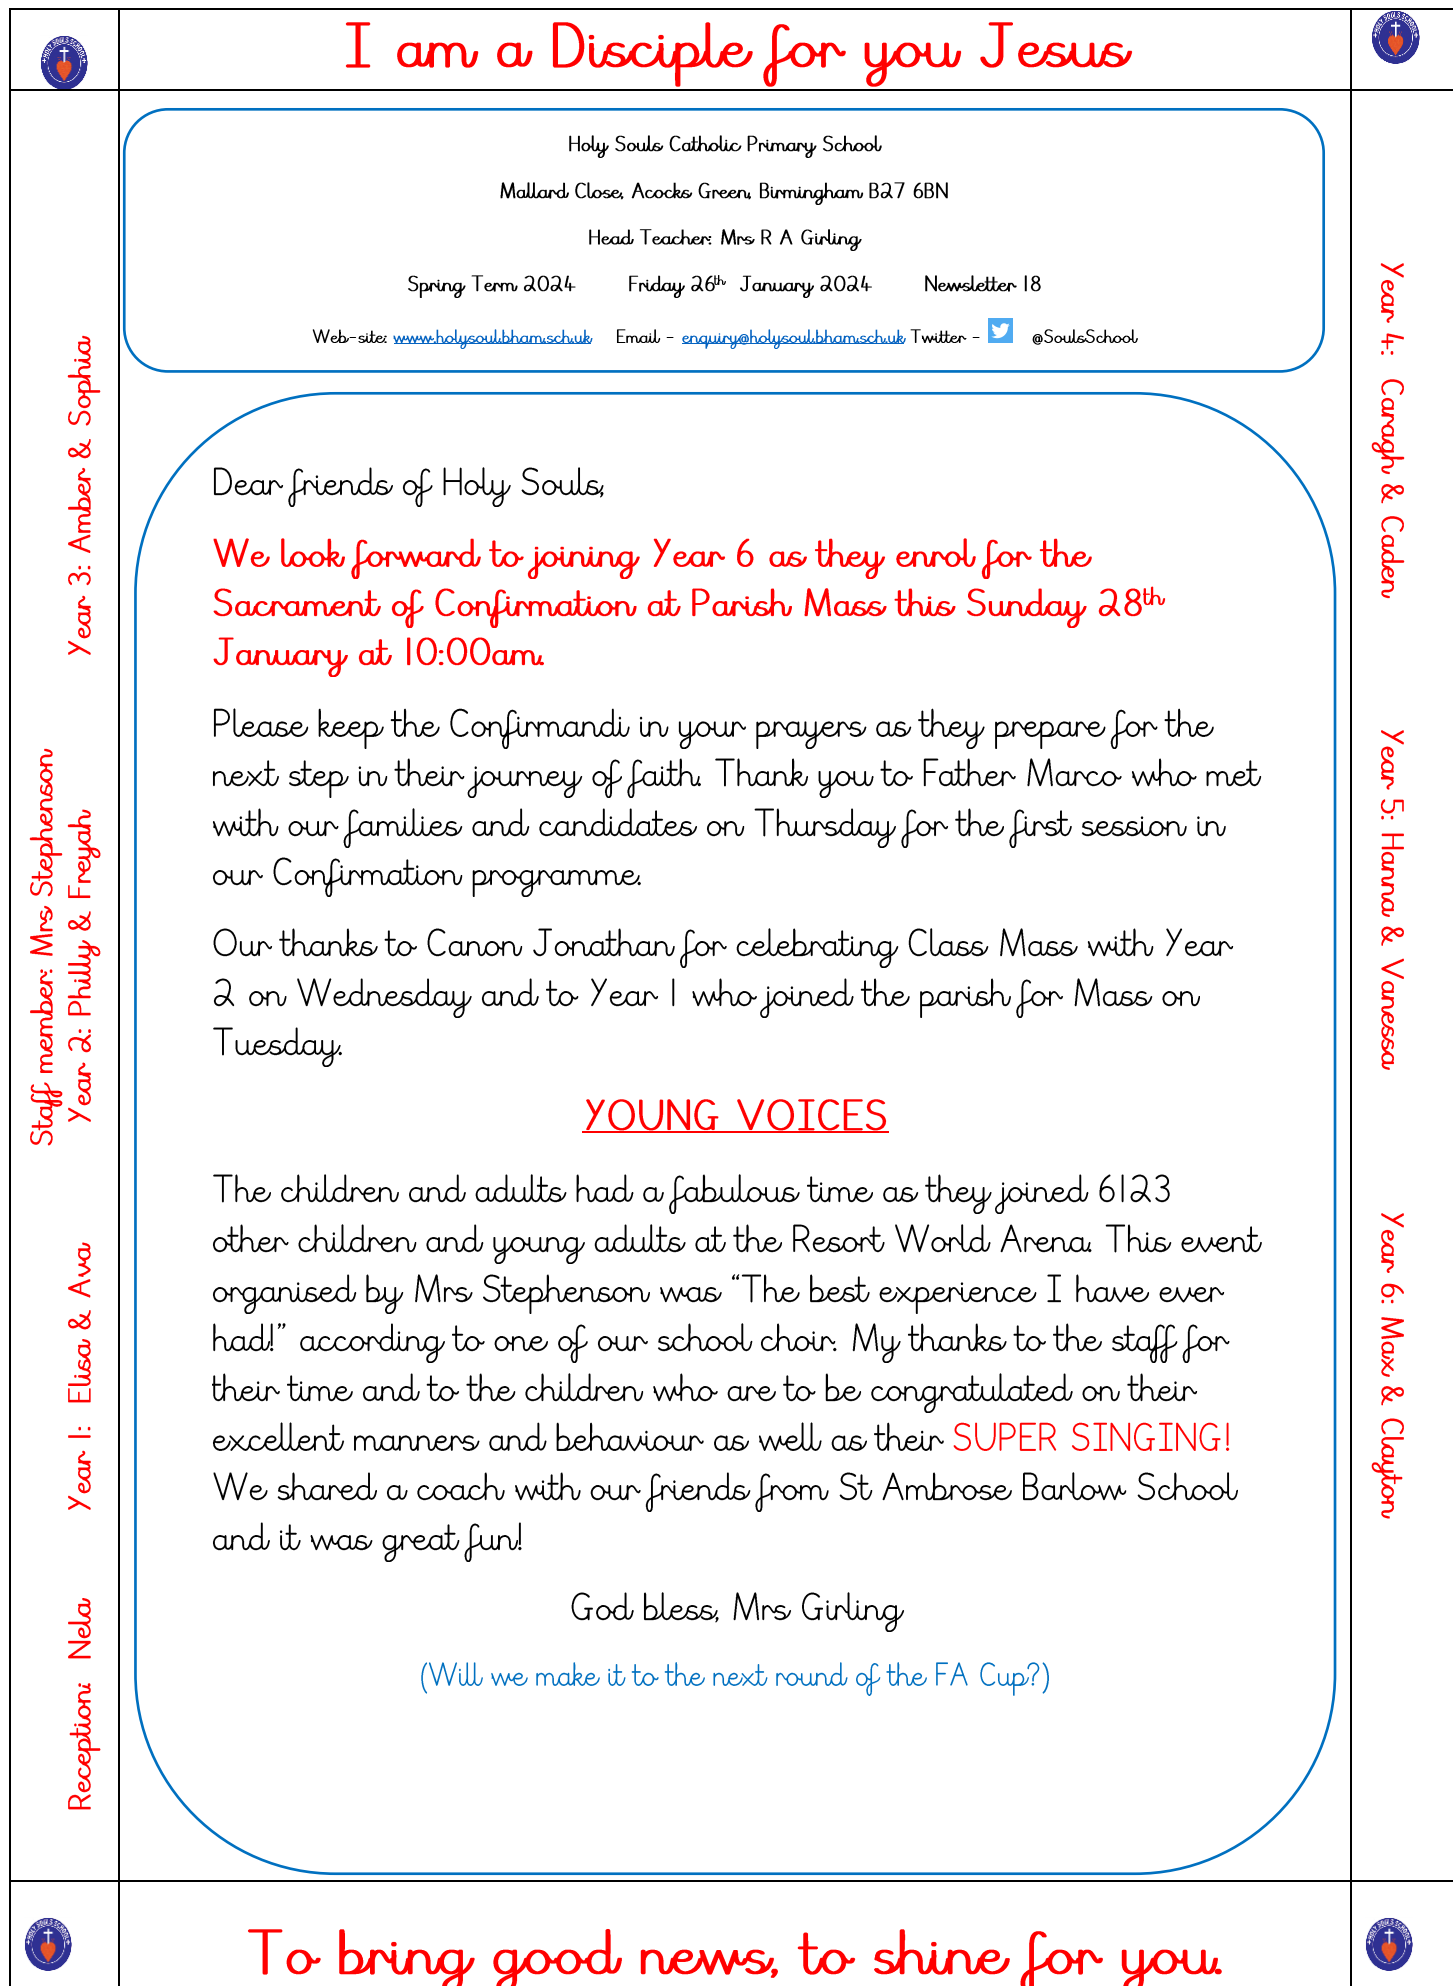 I am a Disciple for you Jesus
Holy Souls Catholic Primary School
Mallard Close, Acocks Green, Birmingham B27 6BN
Head Teacher: Mrs R A Girling
Spring Term 2024 Friday 26th January 2024 Newsletter 18
Web-site: www.holysoul.bham.sch.uk Email - enquiry@holysoul.bham.sch.uk Twitter - @SoulsSchool
Dear friends of Holy Souls,
We look forward to joining Year 6 as they enrol for the
Sacrament of Confirmation at Parish Mass this Sunday 28th
January at 10:00am.
Please keep the Confirmandi in your prayers as they prepare for the
next step in their journey of faith. Thank you to Father Marco who met
with our families and candidates on Thursday for the first session in
our Confirmation programme.
Our thanks to Canon Jonathan for celebrating Class Mass with Year
2 on Wednesday and to Year 1 who joined the parish for Mass on
Tuesday.
YOUNG VOICES
The children and adults had a fabulous time as they joined 6123
other children and young adults at the Resort World Arena. This event
organised by Mrs Stephenson was “The best experience I have ever
had!” according to one of our school choir. My thanks to the staff for
their time and to the children who are to be congratulated on their
excellent manners and behaviour as well as their SUPER SINGING!
We shared a coach with our friends from St Ambrose Barlow School
and it was great fun!
God bless, Mrs Girling
(Will we make it to the next round of the FA Cup?)
Staff member: Mrs Stephenson
Reception: Nela
Year 1: Elisa & Ava
Year 2: Philly & Freyah
Year 3: Amber & Sophia
Year 4: Caragh & Caden
Year 5: Hanna & Vanessa
Year 6: Max & Clayton
To bring good news, to shine for you.
HOLY SOULS SCHOOL
HOLY SOULS SCHOOL
HOLY SOULS SCHOOL
HOLY SOULS SCHOOL